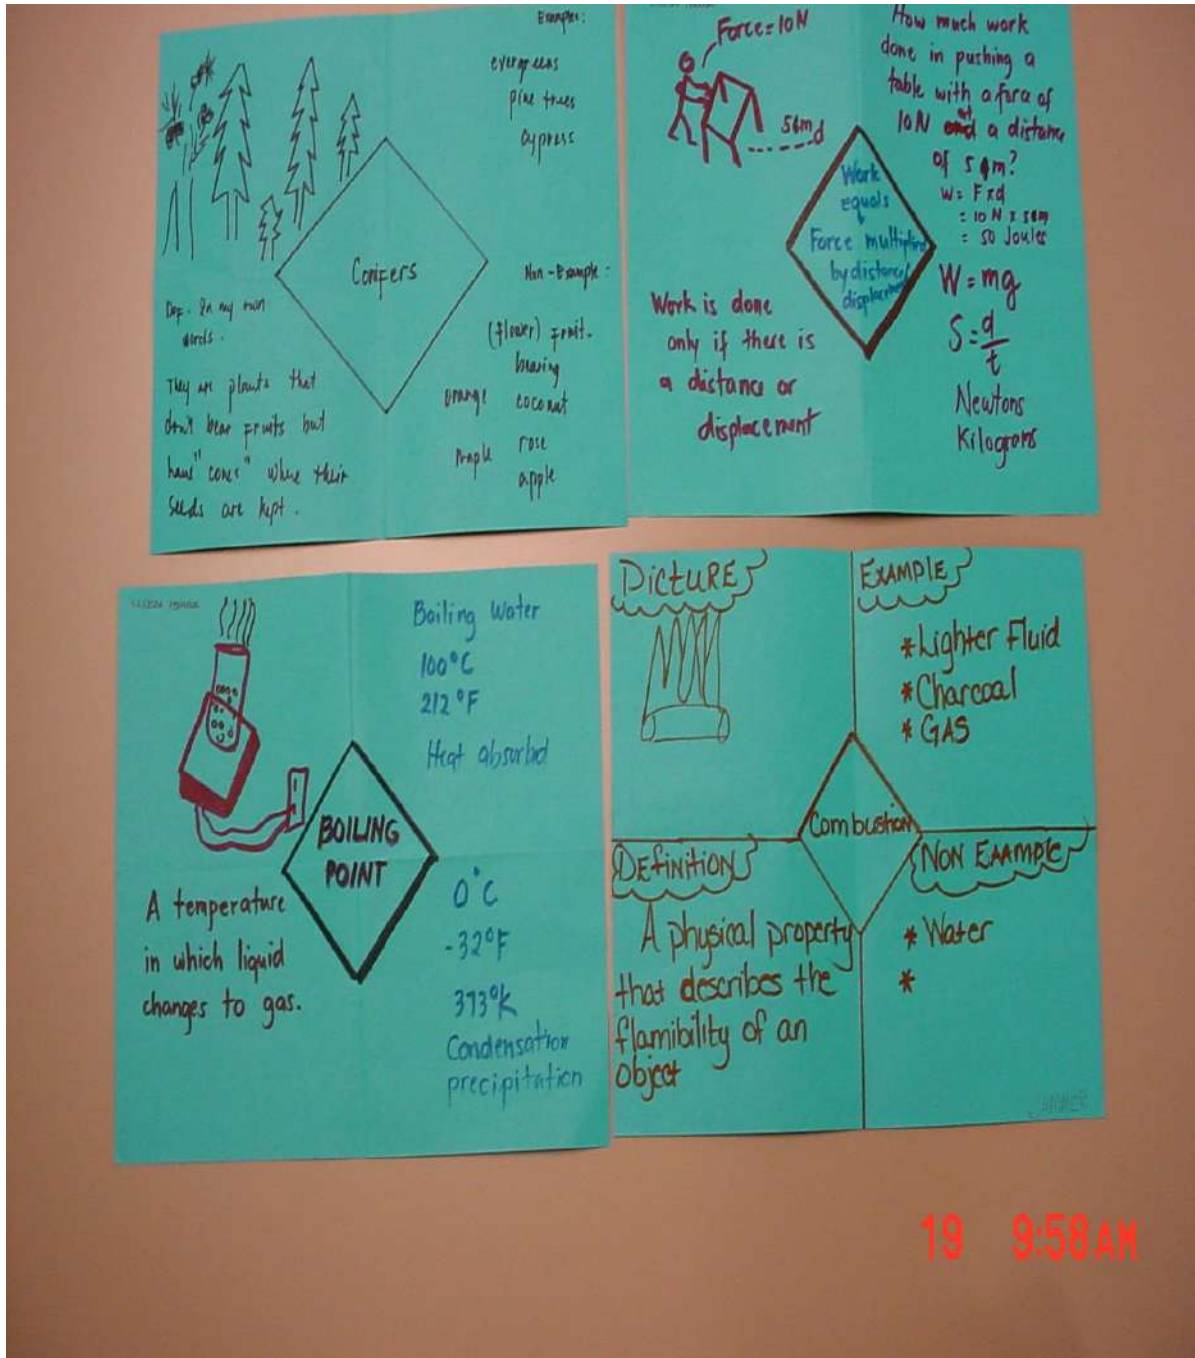 Examples:
evergreens
pine trees
cypress
Conifers
Def. In my own
words.
They are plants that
don't bear fruits but
have "cones" where their
seeds are kept.
Non-Example:
(flower) fruit-
bearing
orange coconut
rose
apple
Force=10N
5m d
How much work
done in pushing a
table with a force of
10N at a distance
of 5m?
W= Fxd
= 10 N x 5m
= 50 Joules
W=mg
S=d/t
Newtons
Kilograms
Work
equals
Force multiplied
by distance/
displacement
Work is done
only if there is
a distance or
displacement
Boiling Water
100°C
212°F
Heat absorbed
BOILING
POINT
A temperature
in which liquid
changes to gas.
0°C
-32°F
373°K
Condensation
precipitation
PICTURE
EXAMPLE
*Lighter Fluid
*Charcoal
*GAS
Combustion
DEFINITION
A physical property
that describes the
flamibility of an
object
NON EAAMPLE
* Water
*
19 9:58AM